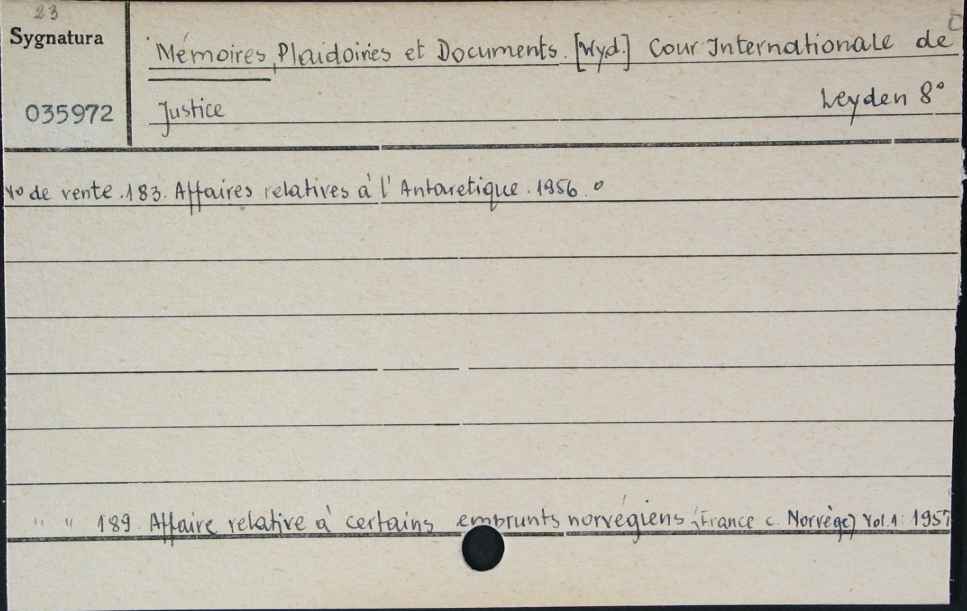 23
Sygnatura
Mémoires, Plaidoiries et Documents. [Wyd.] Cour Internationale de
035972
Justice
Leyden 8°
No de vente. 183. Affaires relatives à l' Antarctique. 1956. o
" " 189. Affaire relative à certains embrunts norvégiens (France c. Norvège) Vol. 1: 1957